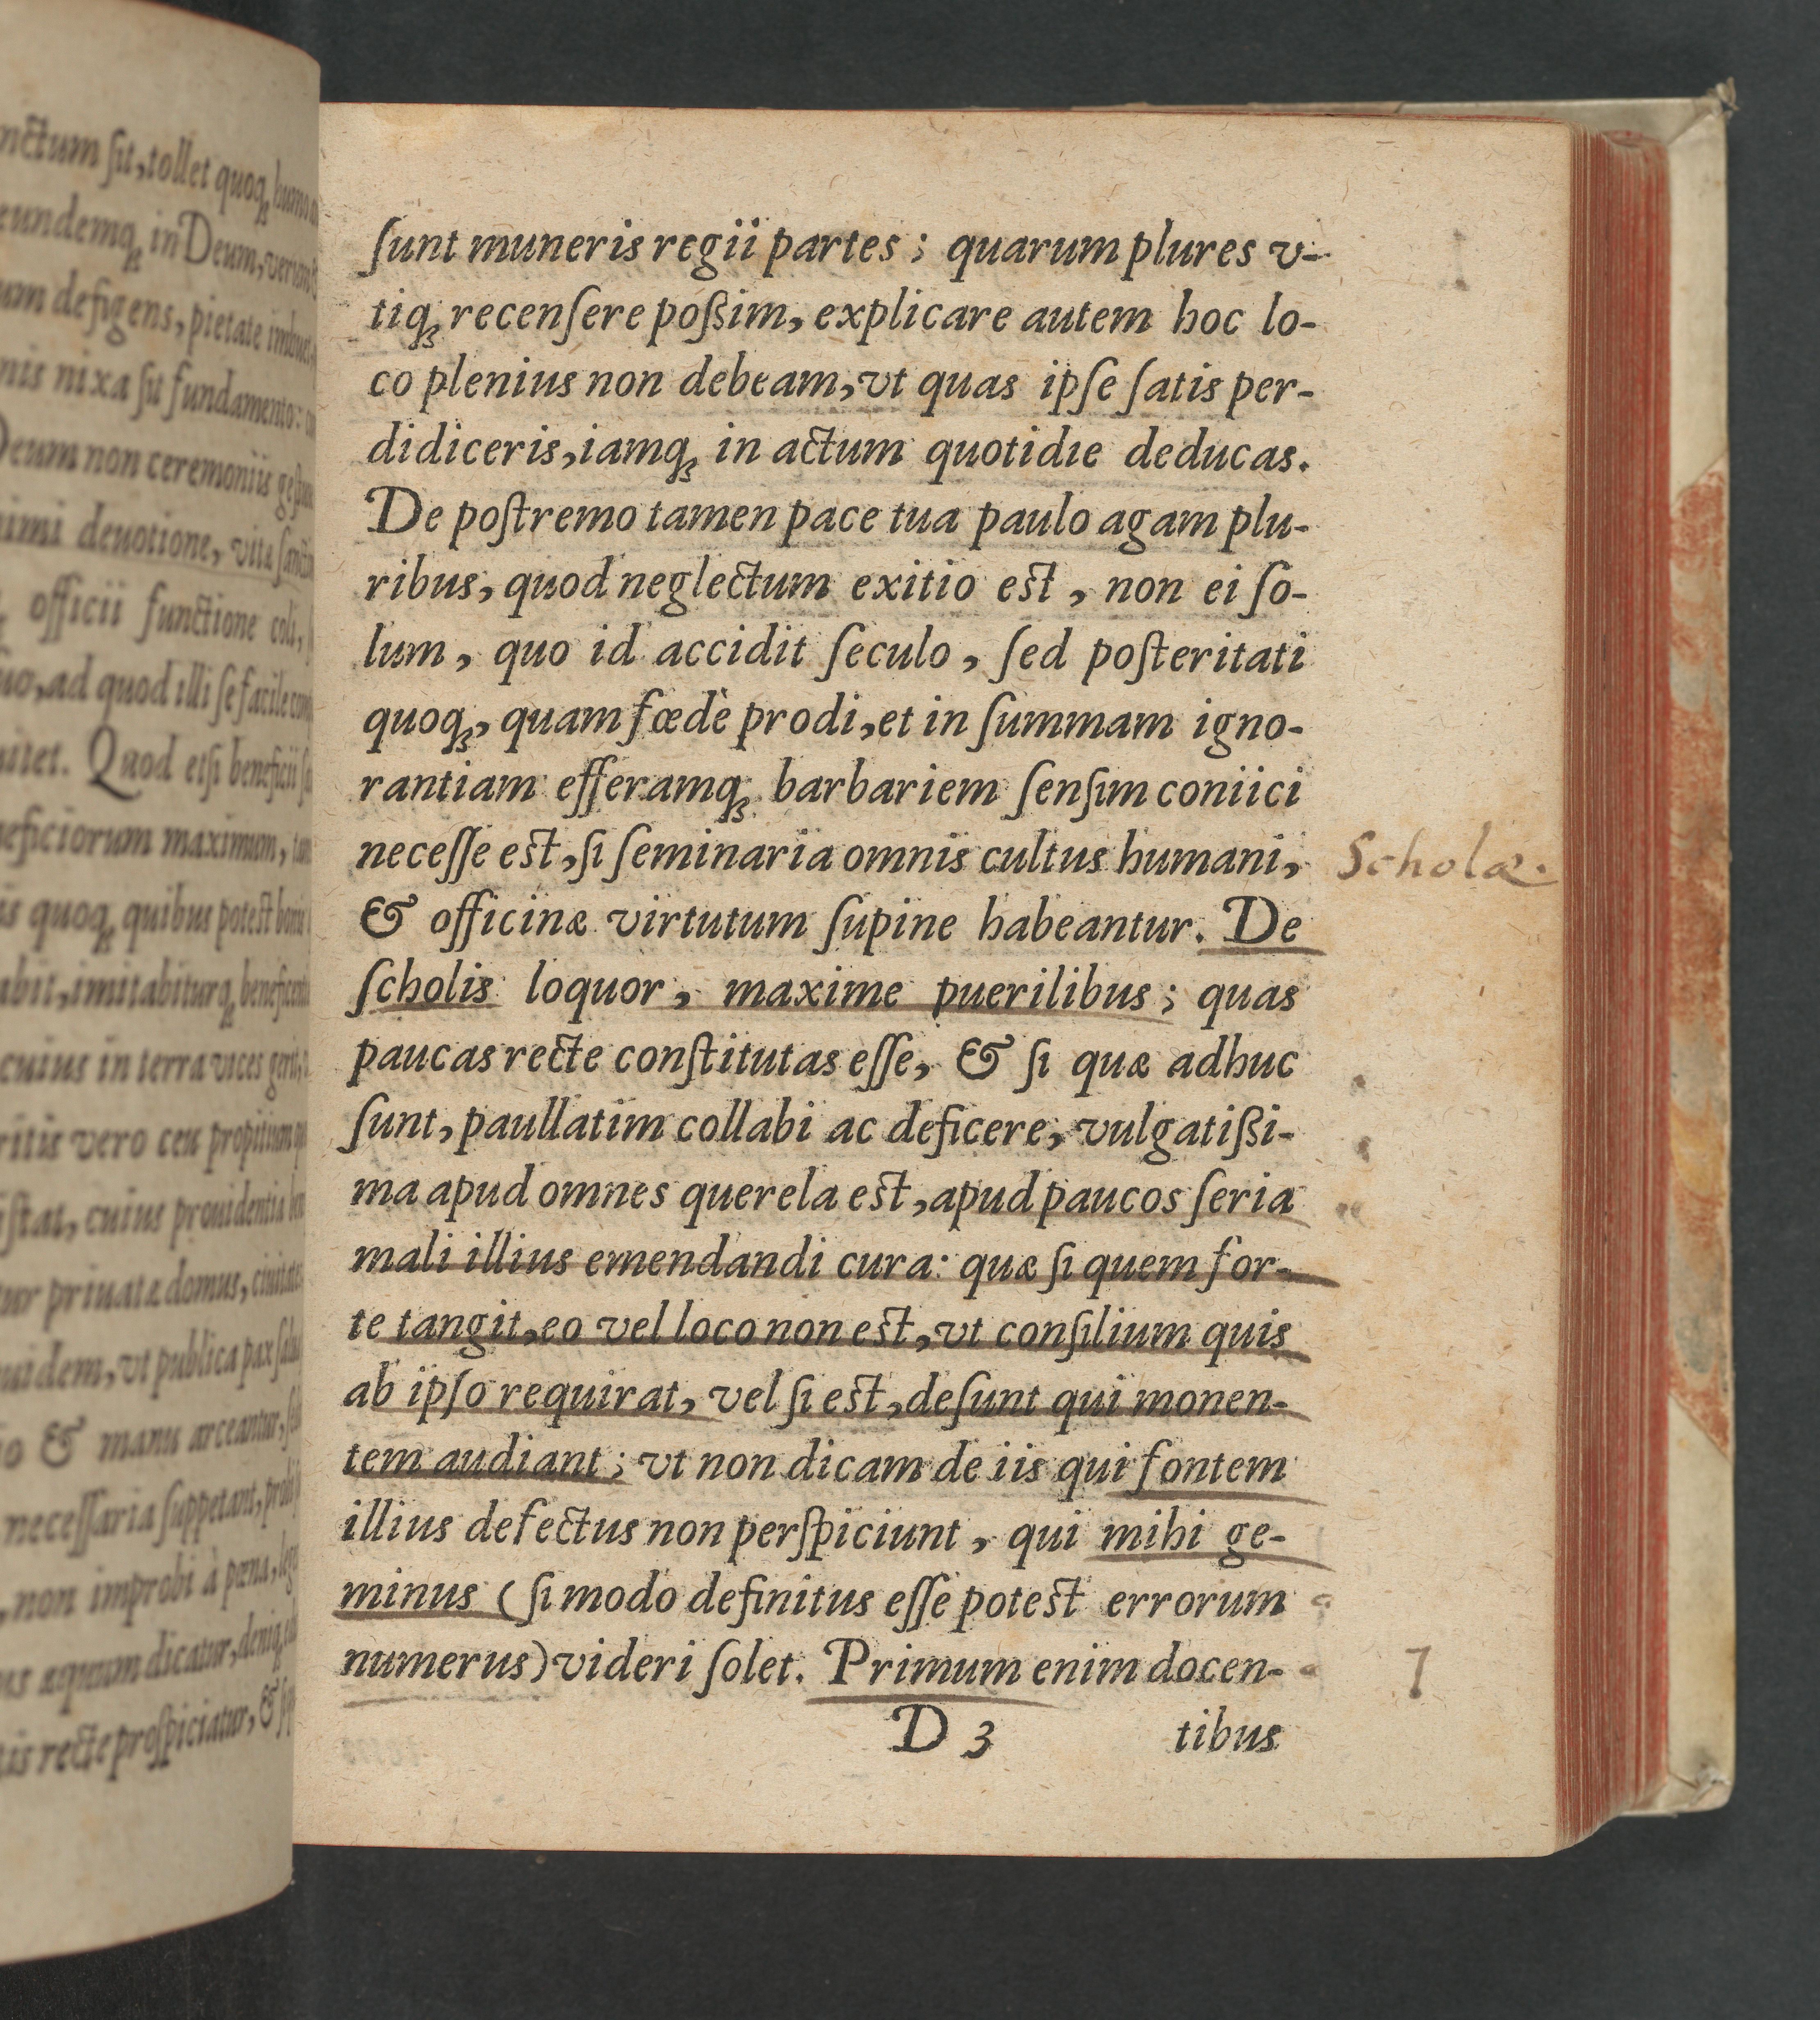 nctum sit, tollet quoq;
eundemq; in Deum,
um defigens, pietate
nis nixa sit fundamento:
Deum non ceremoniis
nimi deuotione, vitæ
officii functione coli,
uo, ad quod illi se facile
Quod etsi beneficii
neficiorum maximum,
is quoq; quibus potest
abit, imitabiturq;
cuius in terra vices gerit,
ritis vero ceu propitium
stat, cuius prouidentia
tur priuatæ domus,
uidem, vt publica pax
& manu arceantur,
necessaria suppetant,
, non improbi à pœna,
us æquum dicatur,
is recte prospiciatur, &
ſunt muneris regii partes; quarum plures v-
tiq; recenſere poßim, explicare autem hoc lo-
co plenius non debeam, vt quas ipſe ſatis per-
didiceris, iamq; in actum quotidie deducas.
De poſtremo tamen pace tua paulo agam plu-
ribus, quod neglectum exitio eſt, non ei ſo-
lum, quo id accidit ſeculo, ſed poſteritati
quoq;, quam fœdè prodi, et in ſummam igno-
rantiam efferamq; barbariem ſenſim coniici
neceſſe eſt, ſi ſeminaria omnis cultus humani,
Scholæ.
& officinæ virtutum ſupine habeantur. De
ſcholis loquor, maxime puerilibus; quas
paucas recte conſtitutas eſſe, & ſi quæ adhuc
ſunt, paullatim collabi ac deficere, vulgatißi-
ma apud omnes querela eſt, apud paucos ſeria
mali illius emendandi cura: quæ ſi quem for-
te tangit, eo vel loco non eſt, vt conſilium quis
ab ipſo requirat, vel ſi eſt, deſunt qui monen-
tem audiant; vt non dicam de iis qui fontem
illius defectus non perſpiciunt, qui mihi ge-
minus (ſi modo definitus eſſe poteſt errorum
numerus) videri ſolet. Primum enim docen-
D 3
tibus